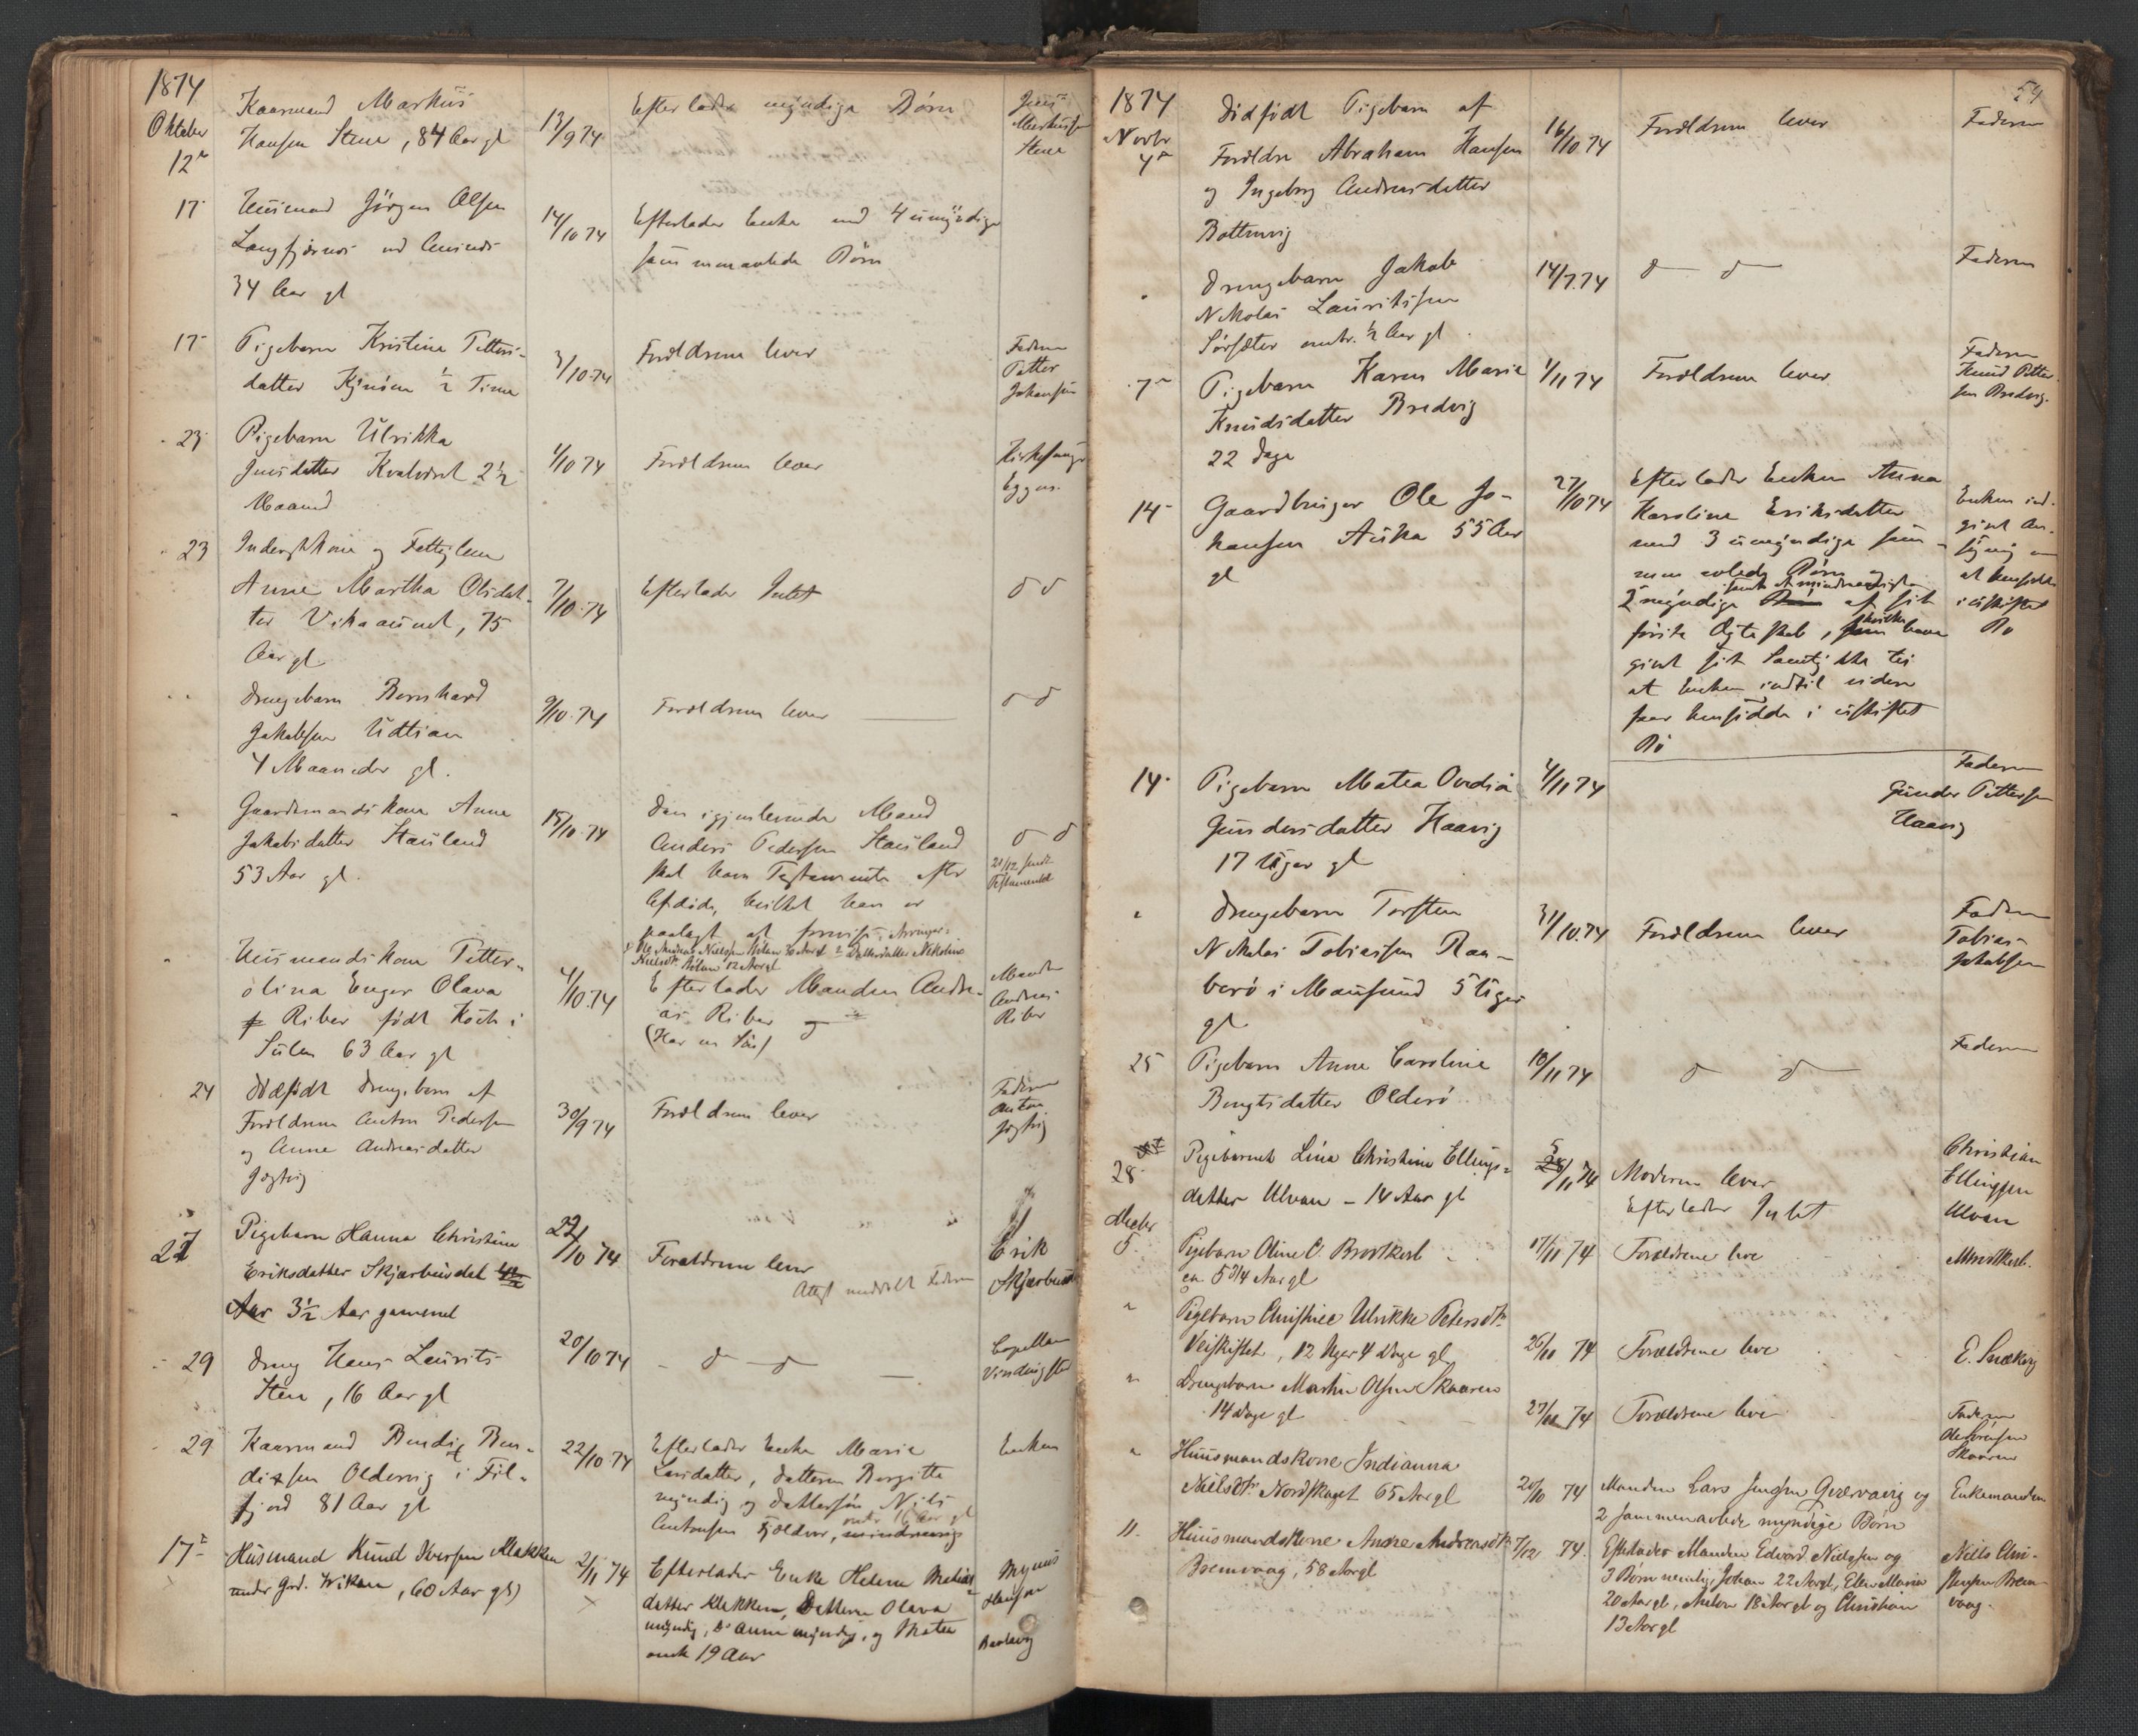 1874
Oktober
12te
Kaarmand Markus
Hansen Steen, 84 Aar gl
13/9 74
Efterlader myndige Børn
Jens
Markussen
Steen
17
Husmand Jørgen Olsen
34 Aar gl
14/10 74
Efterlader Enke med 4 umyndige
sammenavlede Børn
17
Pigebarn Kristine Petters-
datter ½ Time
3/10 74
Forældrene lever
Faderen
Petter
Johansen
23
Pigebarn Ulrikka
Jensdatter 2½
Maaned
1/10 74
Forældrene lever
Kirkesanger
Eggen
23
Inderstkone og Fattiglem
Anne Martha Olsdat-
ter Vikasund, 75
Aar gl.
7/10 74
Efterlader Intet
d d
Drengebarn Bernhard
Jakobsen Udtian
4 Maaneder gl.
9/10 74
Forældrene lever
d d
Gaardmandskone Anne
Jakobsdatter Stavland
53 Aar gl.
15/10 74
Den igjenlevende Mand
Anders Pedersen Stavland
skal have Testamente efter
Afdøde, hvilket han er
paalagt at forevise. Arvinger:
Ole Andreas Nielsen Holm Datterdatter Nikoline
Nielsdtr Holm 12 Aar gl
d d
21/12 sendt
Testamentet
Husmandskone Petter-
olina Enger Olava
Riber født Koch i
Sulen 63 Aar gl
4/10 74
Efterlader Manden Andre-
as Riber
(Har en Søn)
Manden
Andreas
Riber
24
Dødfødt Drengebarn af
Forældrene Anton Pedersen
og Anne Andreasdatter
Jøstvig
30/9 74
Forældrene lever
Faderen
Anton
Jøstvig
27
Pigebarn Hanna Christine
Eriksdatter Skjærbusdal
Aar 3½ Aar gammel
22/10 74
Forældrene lever
Attest meddelt Faderen
Erik
Skjærbusdal
29
Dreng Hans Laurits
Steen, 16 Aar gl
20/10 74
d d
Capellan
29
Kaarmand Bendix Ben-
dixsen Oldervig i Fil-
fjord 81 Aar gl
22/10 74
Efterlader Enke Marie
Larsdatter, Datteren Bergitte
myndig og Dattersøn Nils
Antonsen Fjeldvær, mindreaarig
under 16 Aar gl
Enken
17de
Husmand Knud Iversen Klakken
under Grd. Vikan, 60 Aar gl)
2/11 74
Efterlader Enke Helene Mathias-
datter Klakken, Datteren Olava
myndig, Do Anne myndig, og Mathea
omtr 19 Aar
Magnus
Hansen
54
1874
Novbr
4de
Dødfødt Pigebarn af
Forældre Abraham Hansen
og Ingeborg Andreasdatter
Bottenvig
16/10 74
Forældrene lever
Faderen
Drengebarn Jakob
Nikolai Lauritssen
Sørsæter omtr. ½ Aar gl.
14/7 74
d d
Faderen
7de
Pigebarn Karen Marie
Knudsdatter Bredvig
22 Dage
1/11 74
Forældrene lever
Faderen
Knud Petter-
sen Bredvig.
14
Gaardbruger Ole Jo-
hansen Auka 55 Aar
gl
27/10 74
Efterlader Enken Anna
Karoline Eriksdatter
med 3 umyndige sam-
men avlede Børn og
samt 1 mindreaarig
2 myndige Børn af sit
første Ægteskab, som hvilke have
givet sit Samtykke til
at Enken indtil videre
faar hensidde i uskiftet
Bo
Enken ind-
givet An-
søgning om
at hensidde
i uskiftet
Bo
14
Pigebarn Matea Ovedia
Gundersdatter Haavig
17 Uger gl
4/11 74
Faderen
Gunder Pettersen
Haavig
Drengebarn Torsten
Nikolai Tobiassen Raa-
berø i Mausund 5 Uger
gl
31/10 74
Forældrene lever
Faderen
Tobias
Jakobsen
25
Pigebarn Anne Caroline
Bengtsdatter Olderø
10/11 74
d d
Faderen
28
Pigebarnet Lina Christine Ellings-
datter Ulvan - 14 Aar gl
5/11 74
Moderen lever
Efterlader Intet
Christian
Ellingsen
Ulvan
Decbr
5.
Pigebarn Oline O. Brostkest
ca. 5 3/4 Aar gl
17/11 74
Forældrene leve
Pigebarn Christine Ulrikke Petersdtr
Veiskistet, 12 Uger 4 Dage gl
26/11 74
Forældrene leve
E. Snekvig
Drengebarn Martin Olsen Skaaren
14 Dage gl
27/11 74
Forældrene leve
Faderen
Ole Sørensen
Skaaren
Huusmandskone Indianna
Nielsdtr Nordskaget 65 Aar gl
20/10 74
Manden Lars Jensen og
2 sammenavlede myndige Børn
Enkemanden
11.
Huusmandskone Andreasdtr
Bremvaag, 58 Aar gl
7/12 74.
Efterlader Manden Edvard Nielsen og
3 Børn nemlig, Johan 22 Aar gl, Ellen Maria
20 Aar gl, Anton 18 Aar gl og Christian
13 Aar gl
Niels Chri-
stensen Brem-
vaag.